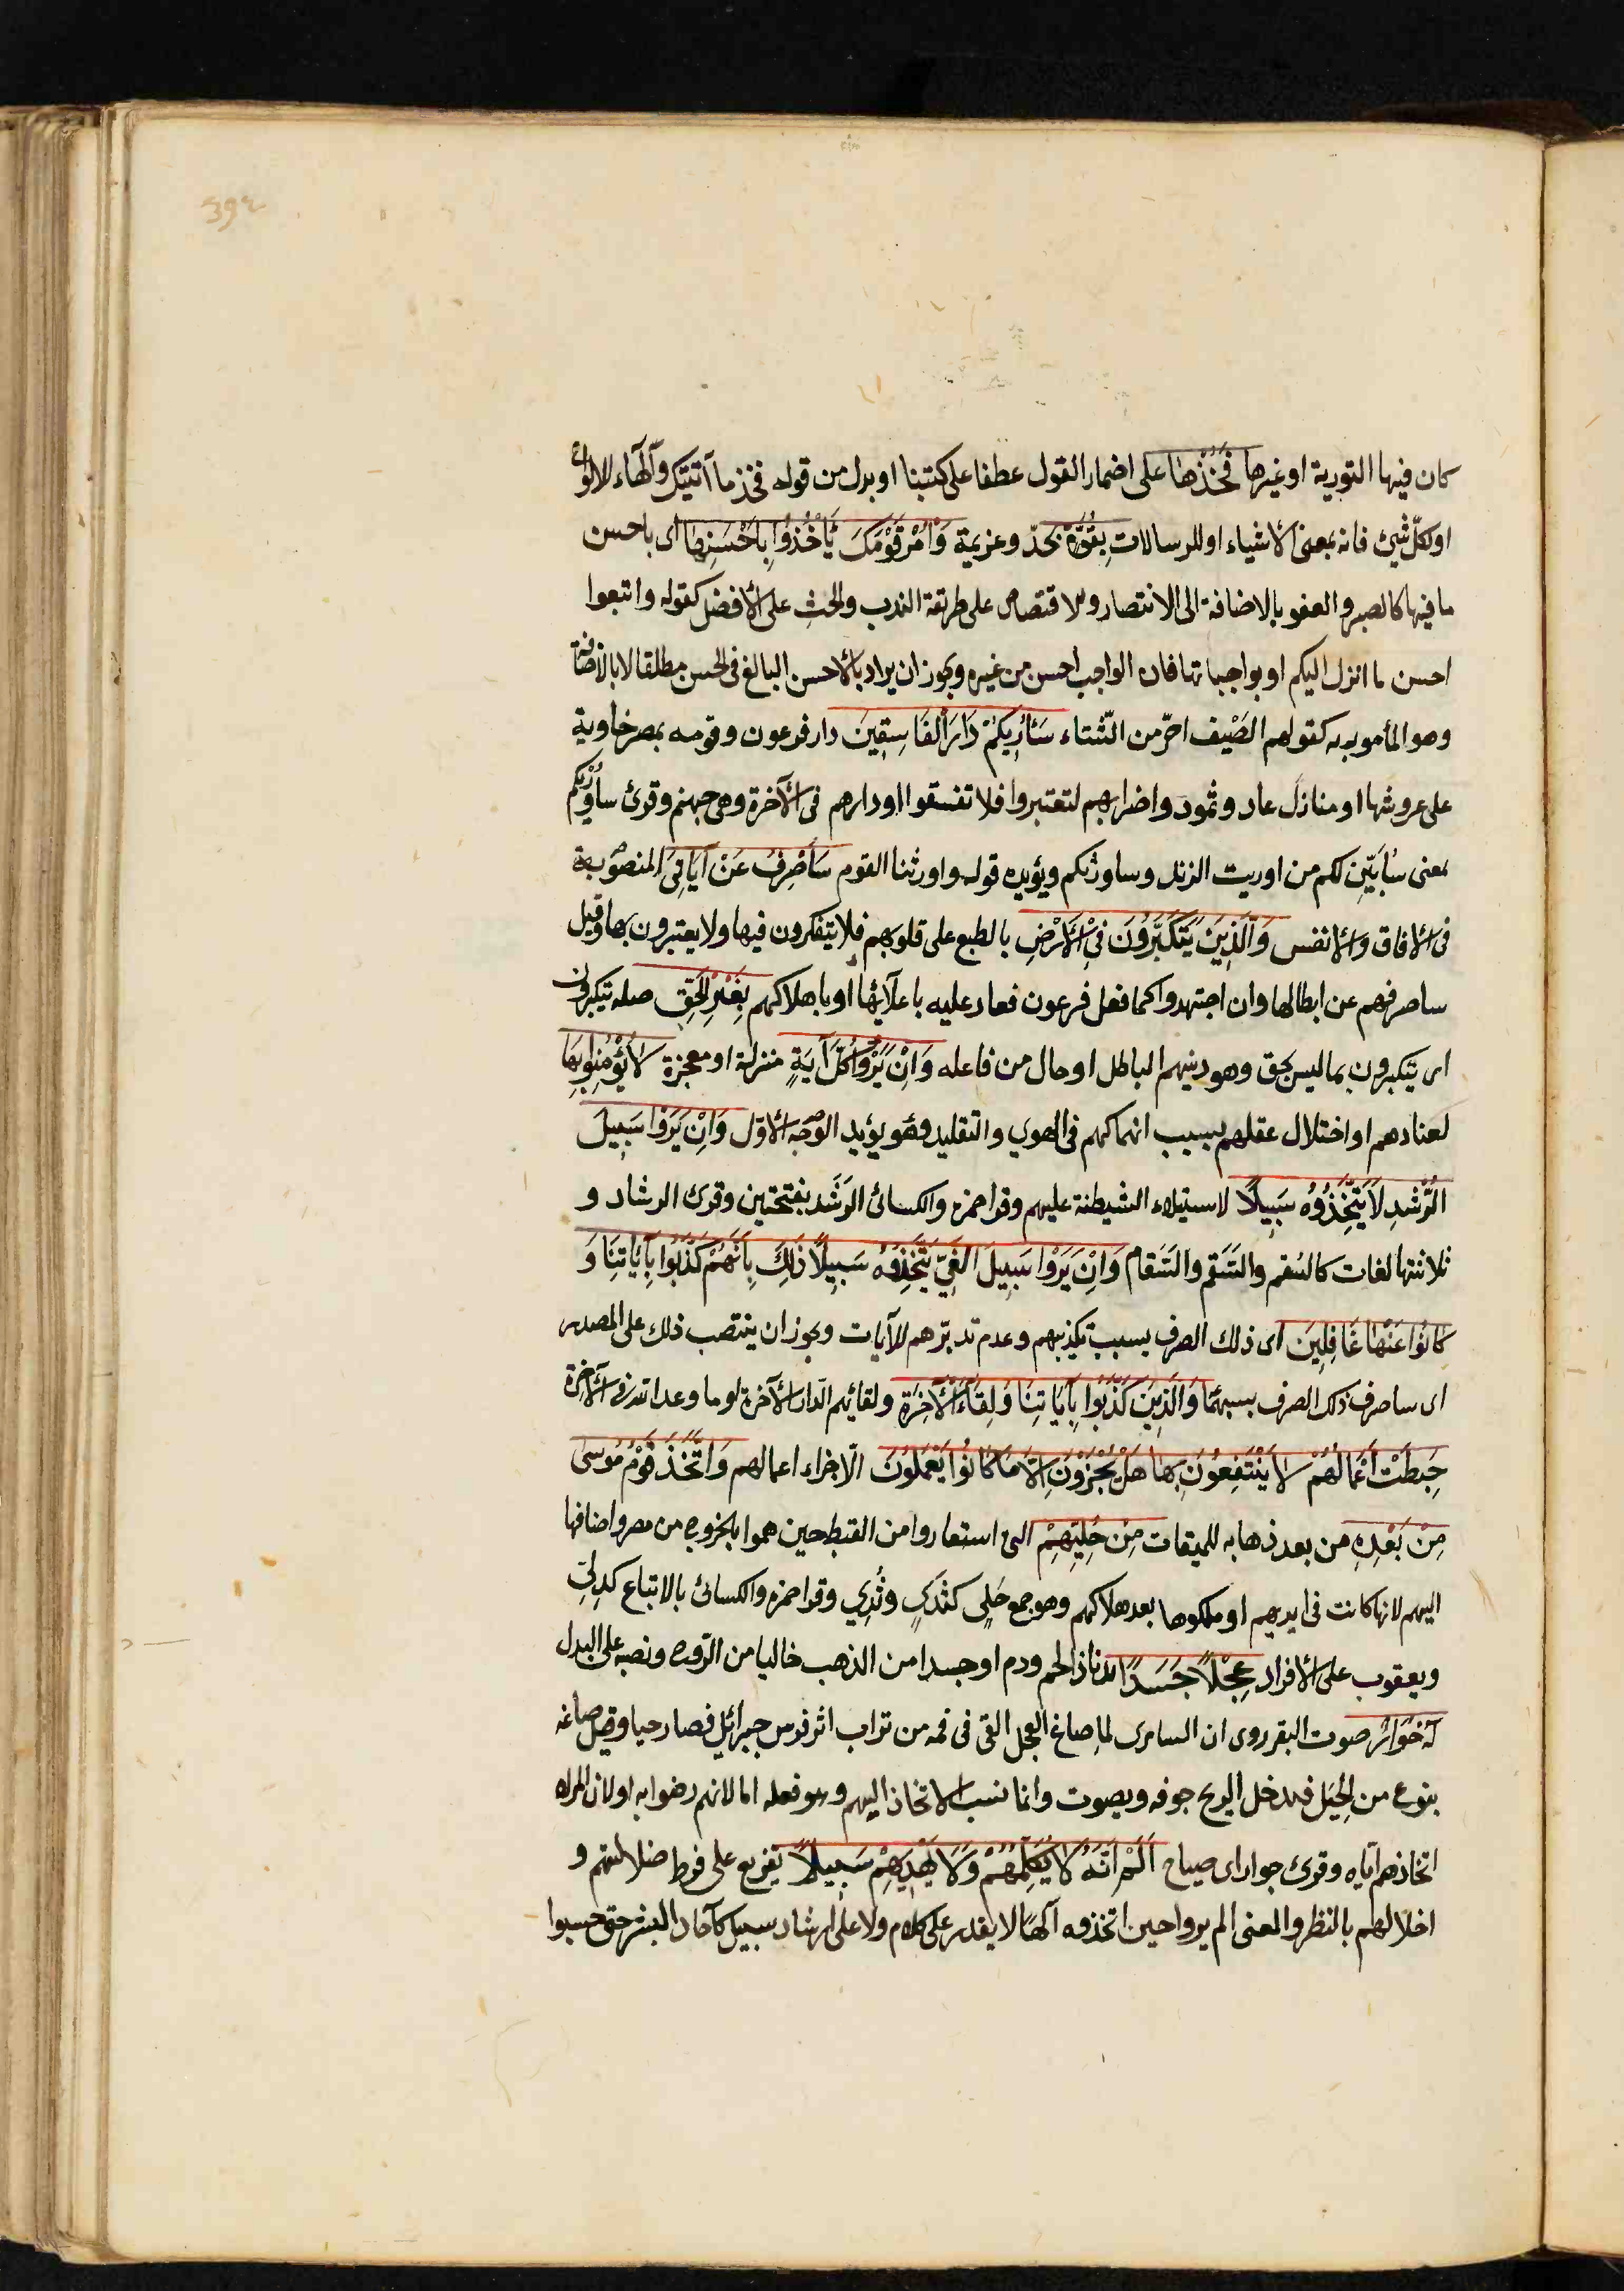 كان فيها التورية او غيرها فَخُذْهَا على اضمار القول عطفا على كتبنا او بدل من قوله فخذ ما آتيتك والهاء للالواح
او لكلّ شيئ فانه بمعنى الاشياء او للرسالات بِقُوَّةٍ بجدّ وعزيمة وَأْمُرْ قَوْمَكَ يَأْخُذُوا بِاَحْسَنِهَا اى باحسن
ما فيها كالصبر والعفو بالاضافة الى الانتصار والاقتصاص على طريقة الندب والحث على الافضل كقوله واتبعوا
احسن ما انزل اليكم او بواجباتها فان الواجب احسن من غيره ويجوز ان يراد بالاحسن البالغ فى الحسن مطلقا لا بالاضافة
وهو المأمور به كقولهم الصَيْف احرّ من الشّتاء سَاُرِيكُمْ دَارَ الْفَاسِقِينَ دار فرعون وقومه بمصر خاوية
على عروشها او منازل عاد وثمود واضرابهم لتعتبروا فلا تفسقوا او دارهم فى الآخرة وهى جهنم وقرئ سأوريكم
بمعنى سأبيّن لكم من اوريت الزند وساورثكم ويؤيده قوله واورثنا القوم سَاَصْرِفُ عَنْ آيَاتِىَ المنصوبة
فى الافاق والانفس وَالَّذِينَ يَتَكَبَّرُونَ فِى الْاَرْضِ بالطبع على قلوبهم فلا يتفكرون فيها ولا يعتبرون بها وقيل
ساصرفهم عن ابطالها وان اجتهدوا كما فعل فرعون فعاد عليه باعلآئها او باهلاكهم بِغَيْرِ الْحَقِّ صله يتكبرون
اى يتكبرون بما ليس بحق وهو دينهم الباطل او حال من فاعله وَاِنْ يَرَوْا كُلَّ آيَةٍ منزلة او معجزة لَا يُؤْمِنُوا بِهَا
لعنادهم او اختلال عقلهم بسبب انهماكهم فى الهوى والتقليد وهو يؤيد الوجه الاوّل وَاِنْ يَرَوْا سَبِيلَ
الرُّشْدِ لَا يَتَّخِذُوهُ سَبِيلًا لاستيلاء الشيطنة عليهم وقرا حمزه والكسائى الرَشَد بفتحتين وقرئ الرشاد و
ثلاثتها لغات كالسُقم والسَّقَم والسَّقام وَاِنْ يَرَوْا سَبِيلَ الْغَيِّ يَتَّخِذُوهُ سَبِيلًا ذٰلِكَ بِاَنَّهُمْ كَذَّبُوا بِآيَاتِنَا وَ
كَانُوا عَنْهَا غَافِلِينَ اى ذلك الصرف بسبب تكذيبهم وعدم تدبّرهم للآيات ويجوز ان ينتصب ذلك على المصدر
اى ساصرف ذلك الصرف بسببهما وَالَّذِينَ كَذَّبُوا بِآيَاتِنَا وَلِقَاءِ الْآخِرَةِ ولقائهم الدار الآخرة او ما وعد الله فى الآخرة
حَبِطَتْ اَعْمَالُهُمْ لا يَنْتَفِعُونَ بها هَلْ يُجْزَوْنَ اِلَّا مَا كَانُوا يَعْمَلُونَ الّا جزاء اعمالهم وَاتَّخَذَ قَوْمُ مُوسٰى
مِنْ بَعْدِهِ من بعد ذهابه للميقات مِنْ حُلِيِّهِمْ التى استعاروا من القبط حين هموا بالخروج من مصر واضافها
اليهم لانها كانت فى ايديهم او ملكوها بعد هلاكهم وهو جمع حَلْى كثدى وثُدِي وقرا حمزه والكسائى بالاتباع كدِلِىّ
ويعقوب على الافراد عِجْلًا جَسَدًا بدنا ذا لحم ودم او جسدا من الذهب خاليا من الرّوح ونصبه على البدل
لَهُ خُوَارٌ صوت البقر روى ان السامرى لما صاغ العجل القى فى فمه من تراب اثر فرس جبرائيل فصار حيا وقيل صاغه
بنوع من الحِيَل فيدخل الريح جوفه ويصوت وانما نسب الاتخاذ اليهم وهو فعله اما لانهم رضوا به او لان المراد
اتخاذهم اياه وقرئ جوار اى صياح اَلَمْ يَرَوْا اَنَّهُ لَا يُكَلِّمُهُمْ وَلَا يَهْدِيهِمْ سَبِيلًا تقريع على فرط ضلالتهم و
اخلالهم بالنظر والمعنى الم يروا حين اتخذوه الٰهًا لا يقدر على كلام ولا على ارشاد سبيل كآحاد البشر حتى حسبوا